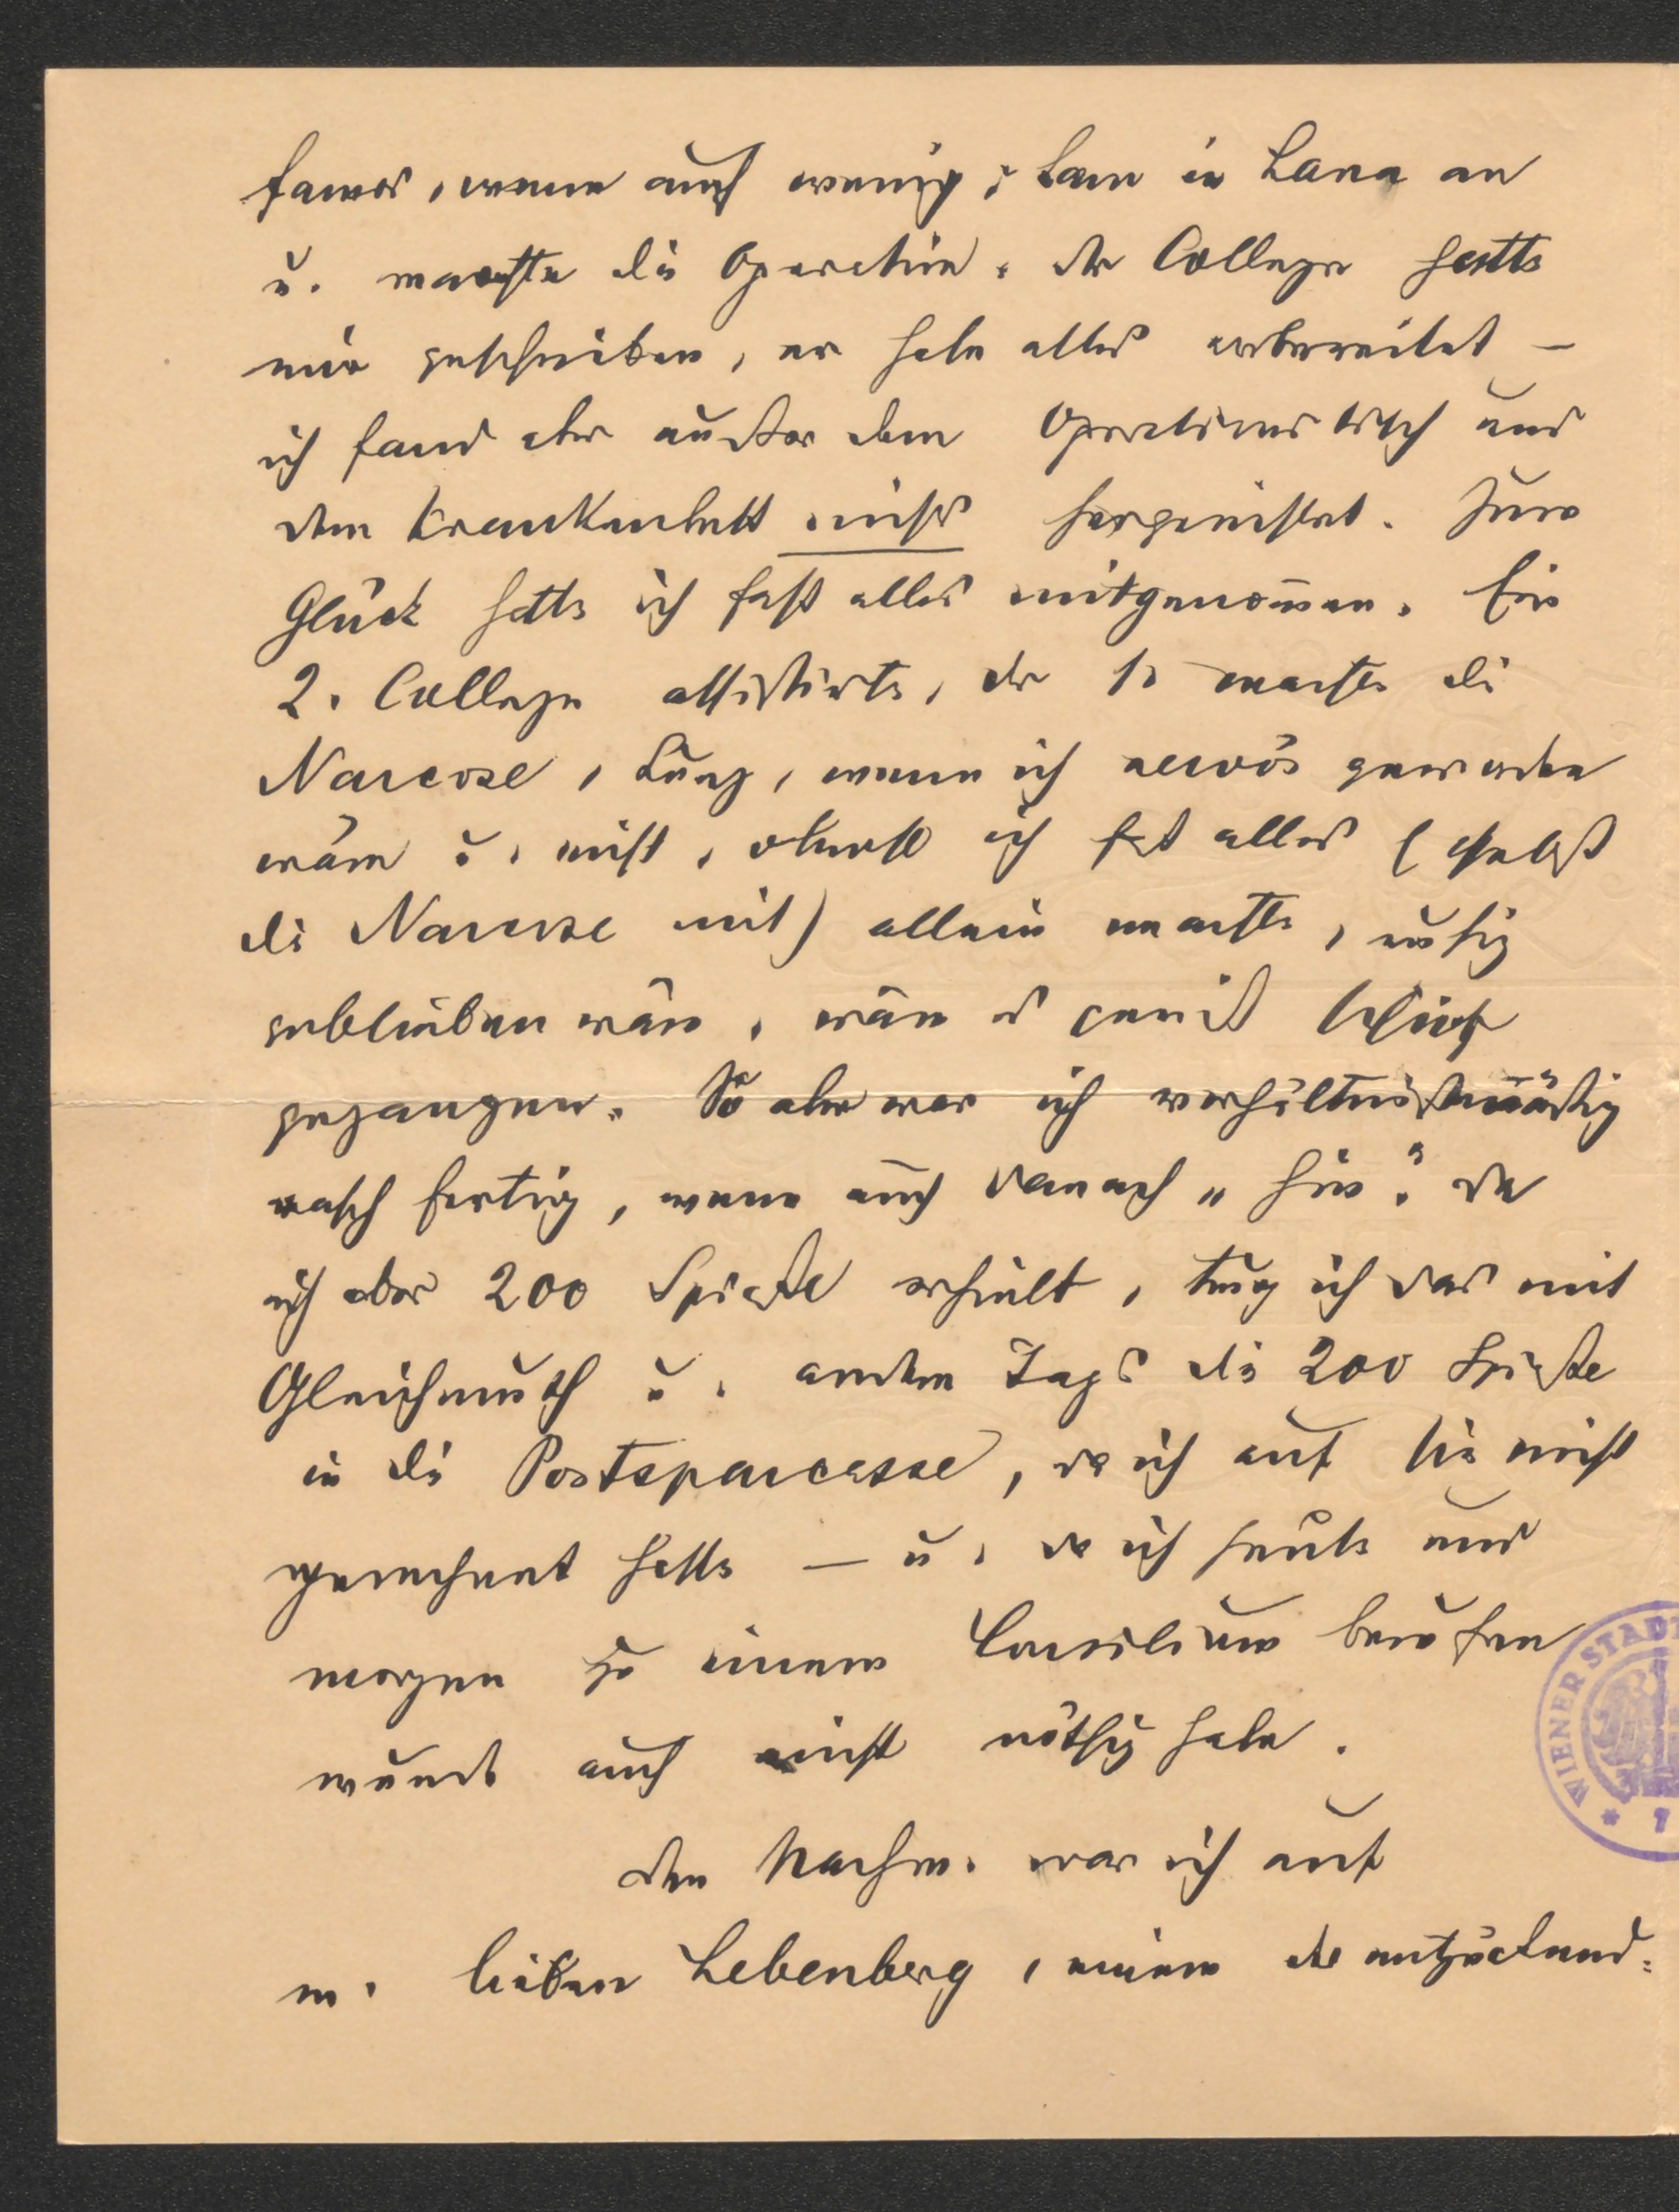 famos, wenn auch wenig, kam in Lana an
u. machte die Operation. Der College hatte
mir geschrieben, er habe alles vorbereitet –
ich fand aber außer dem Operationstisch und
dem Krankenbett nichts hergerichtet. Zum
Glück hatte ich fast alles mitgenom̄en. Ein
2. College assistirte, der 1. machte die
Narcose, kurz, wenn ich nervös geworden
wäre u. nicht, obwohl ich fast alles (selbst
die Narcose mit) allein machte, ruhig
geblieben wäre, wäre es gewiß schief
gegangen. So aber war ich verhältnismäßig
rasch fertig, wenn auch danach „hin". Da
ich aber 200 Spieße erhielt, trug ich das mit
Gleichmuth u. andern Tags die 200 Spieße
in die Postsparcasse, da ich auf sie nicht
gerechnet hatte – u. da ich heute und
morgen zu einem Consilium berufen
wurde auch nicht nöthig habe.
Den Nachm. war ich auf
m. lieben Lebenberg, einem der entzückend-
WIENER STADT